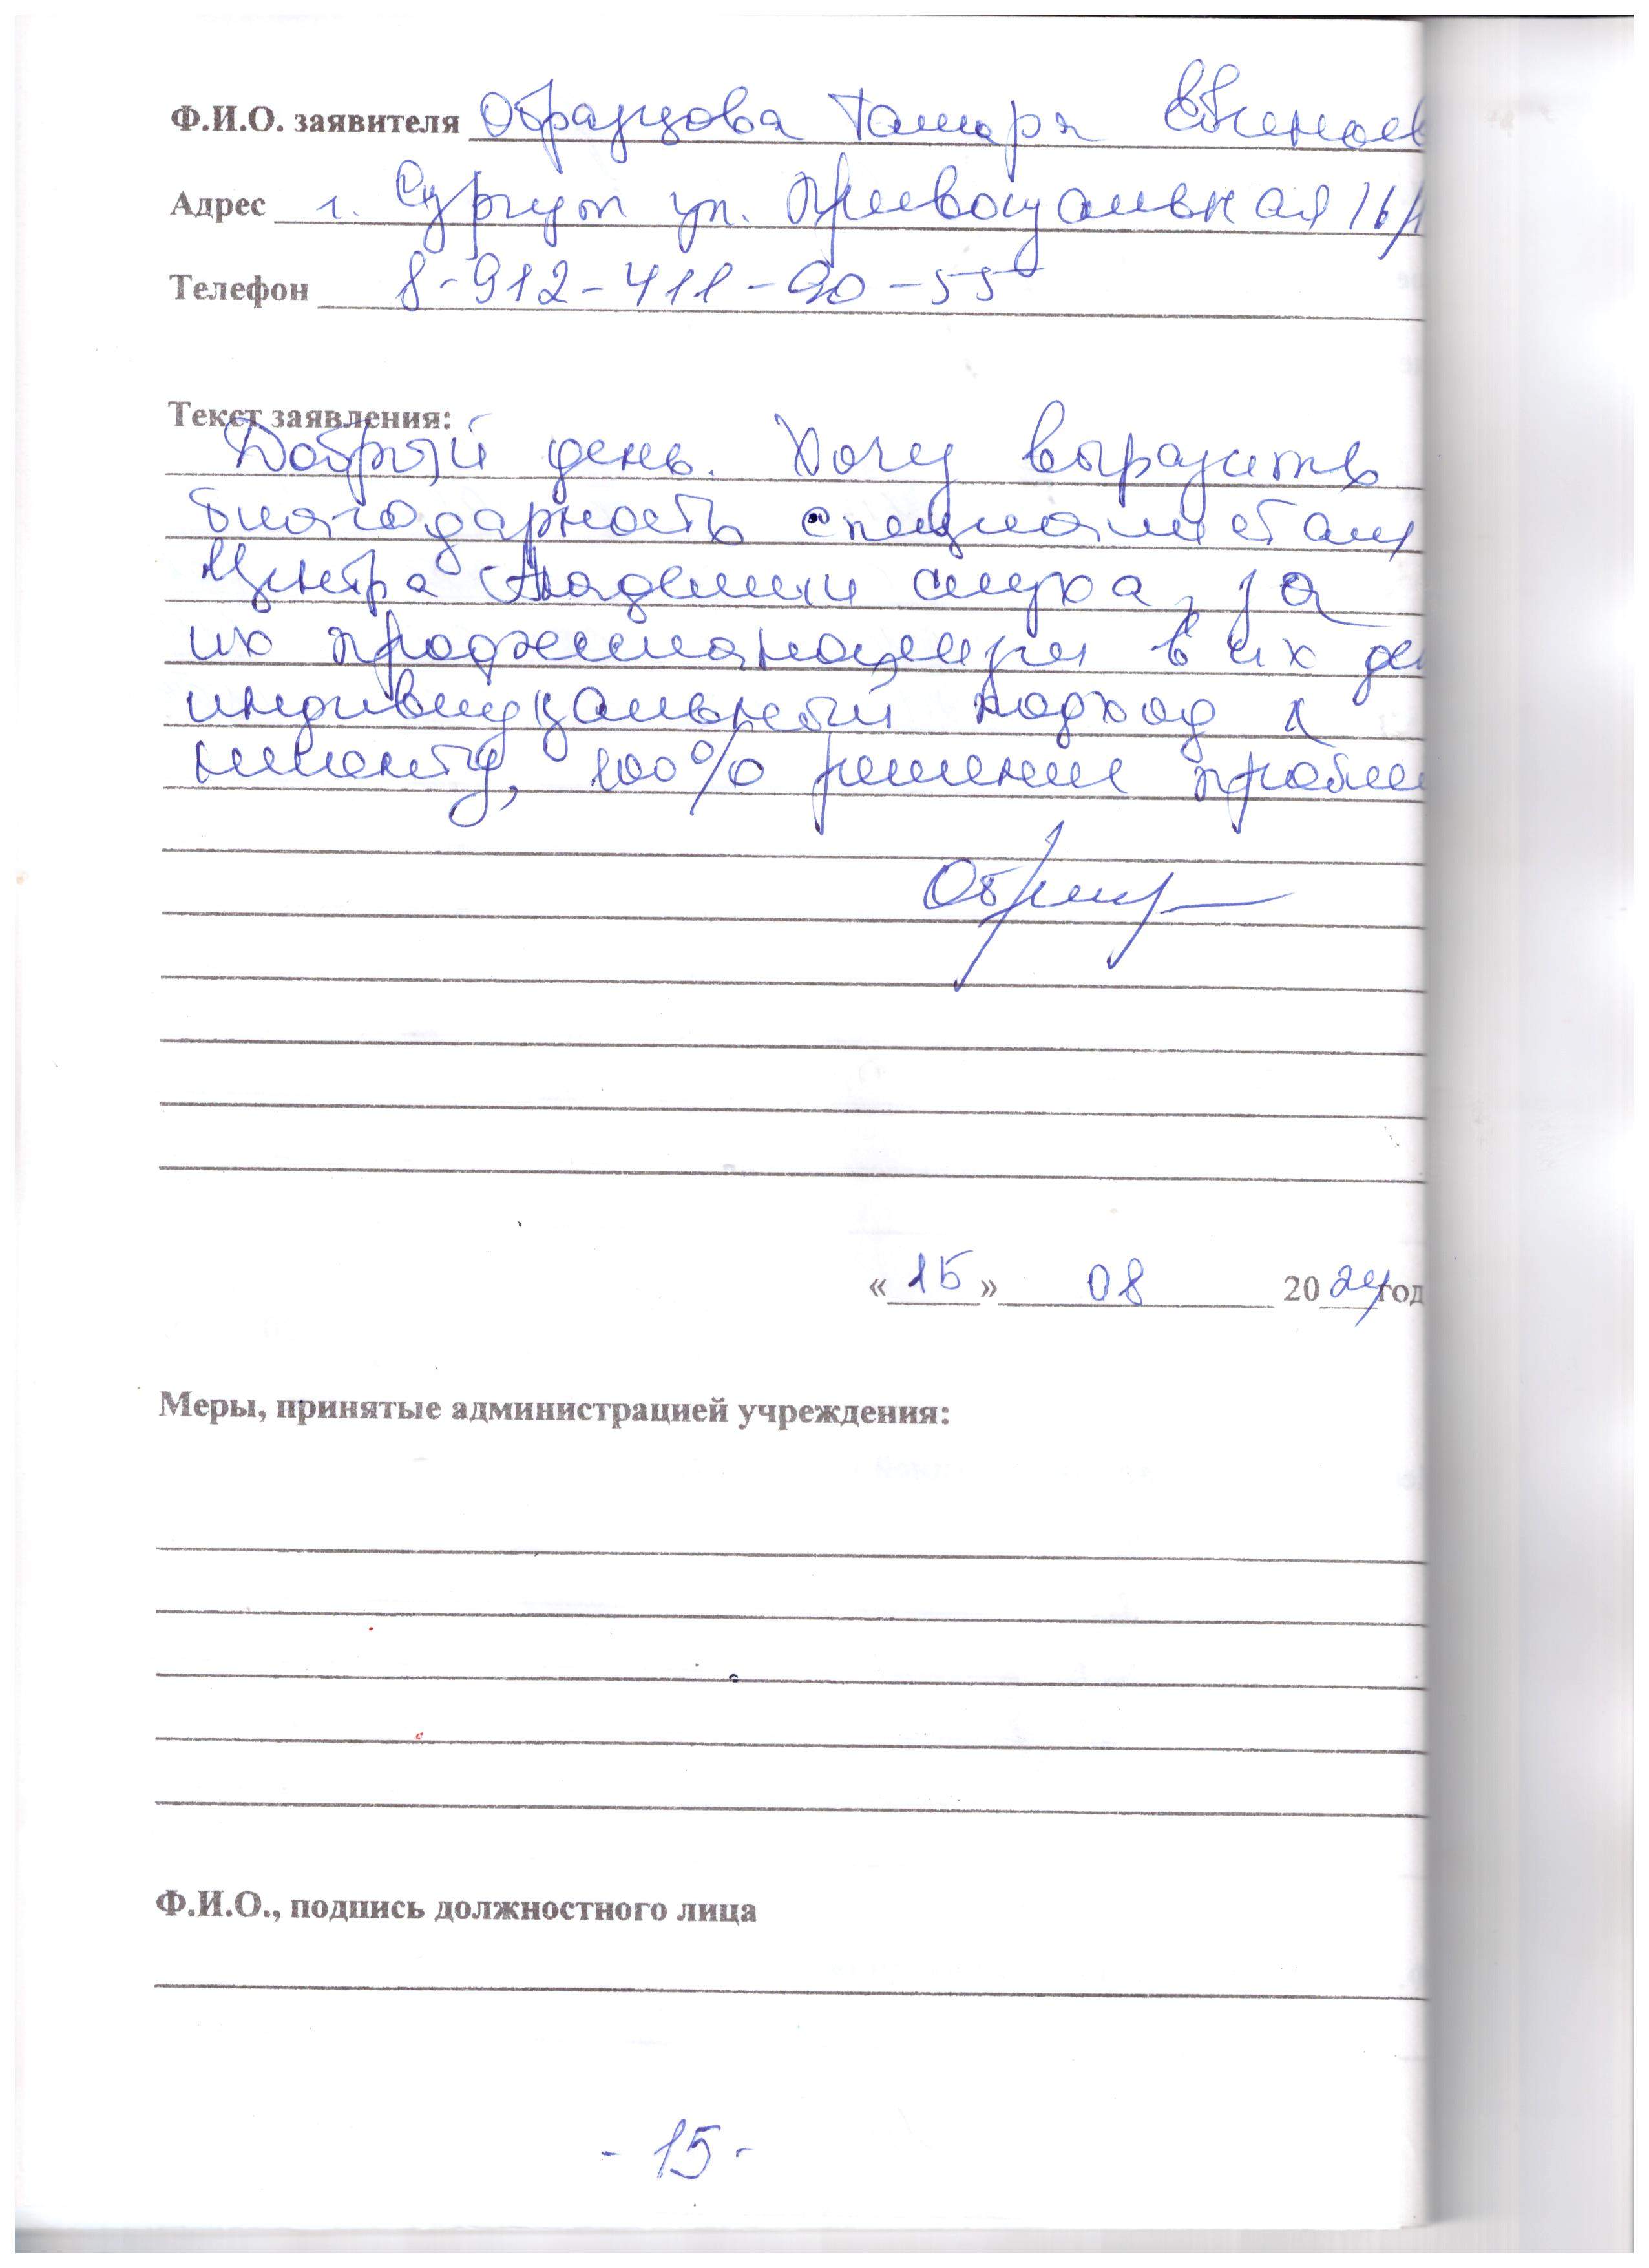 Ф.И.О. заявителя Образцова Тамара
Адрес г. Сургут ул. Привокзальная 16/
Телефон 8-912-411-90-55
Текст заявления:
Добрый день. Хочу выразить
благодарность специалистам
Центра Академии слуха, за
их в их
индивидуальный подход к
клиенту, 100% решение пробле
«15» 08 2024 год
Меры, принятые администрацией учреждения:
Ф.И.О., подпись должностного лица
- 15 -